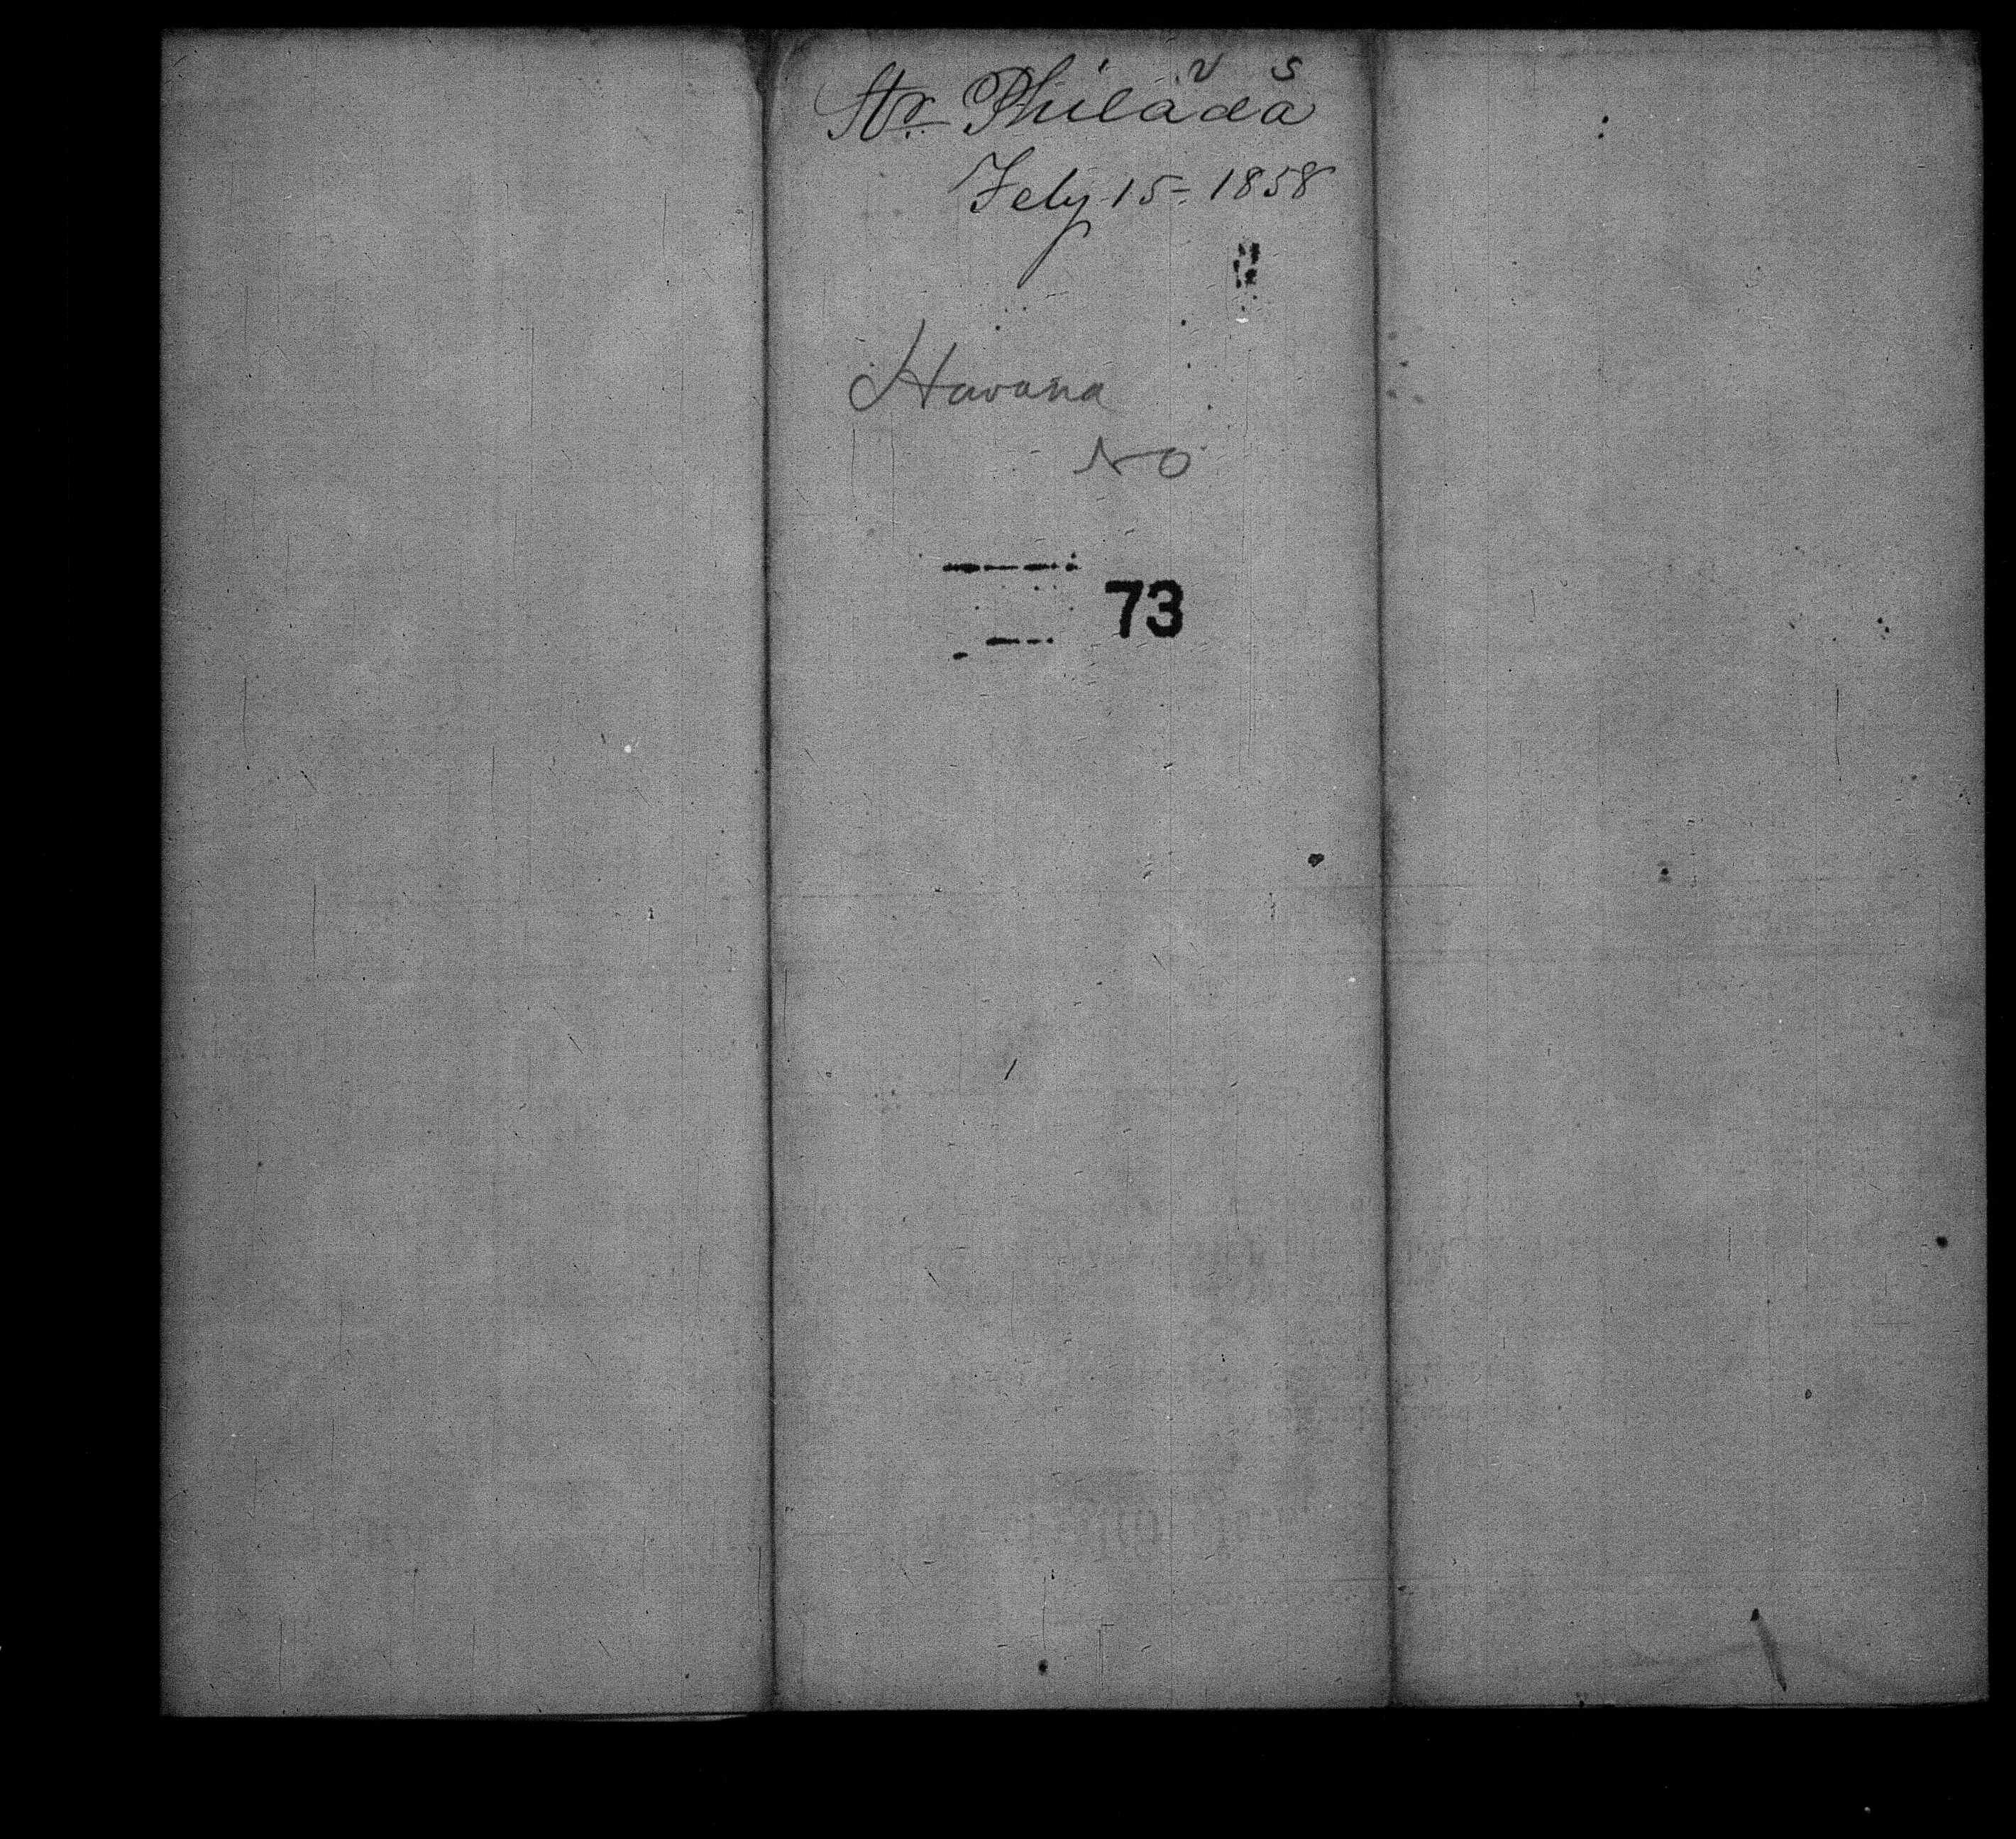 Str Philada
Feby 15 - 1858
Havana
NO
73